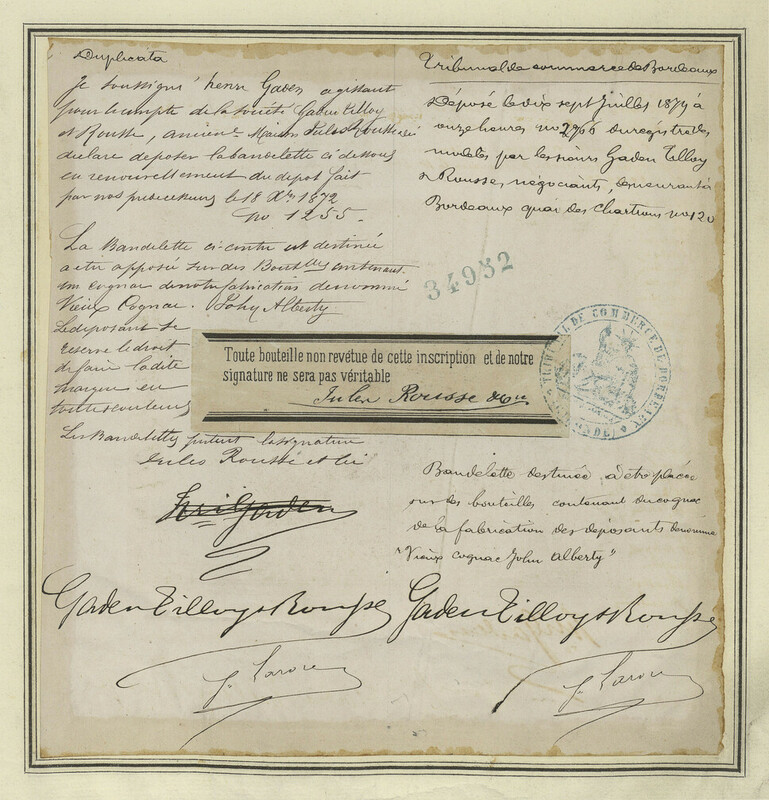 Duplicata
Je soussigné henri Gaden agissant
pour le compte de la société Gaden Tilloy
et Rousse, ancienne Maison Jules Rousse &
déclare déposer la bandelette ci dessous
en renouvellement du dépôt fait
par nos prédécesseurs le 18 Xbre 1872
no 1255.
La Bandelette ci-contre est destinée
a être apposée sur des Bouteilles contenant
un cognac de notre fabrication dénommé
Vieux Cognac. John Alberty
Le déposant se
réserve le droit
de faire la dite
marque en
toutes couleurs
Les Bandelettes portent la signature
Jules Rousse et Cie
Gaden Tilloy & Rousse
Tribunal de commerce de Bordeaux
Déposé le dix sept Juillet 1879 à
onze heures no 2766 du registre des
modèles par les sieurs Gaden Tilloy
& Rousse, négociants, demeurant à
Bordeaux quai des Chartrons no 120
34952
Toute bouteille non revêtue de cette inscription et de notre
signature ne sera pas véritable
Jules Rousse & Cie
TRIBUNAL DE COMMERCE DE BORDEAUX
Bandelette destinée à être placée
sur des bouteilles contenant du cognac
de la fabrication des déposants dénommé
"Vieux cognac John Alberty"
Gaden Tilloy & Rousse